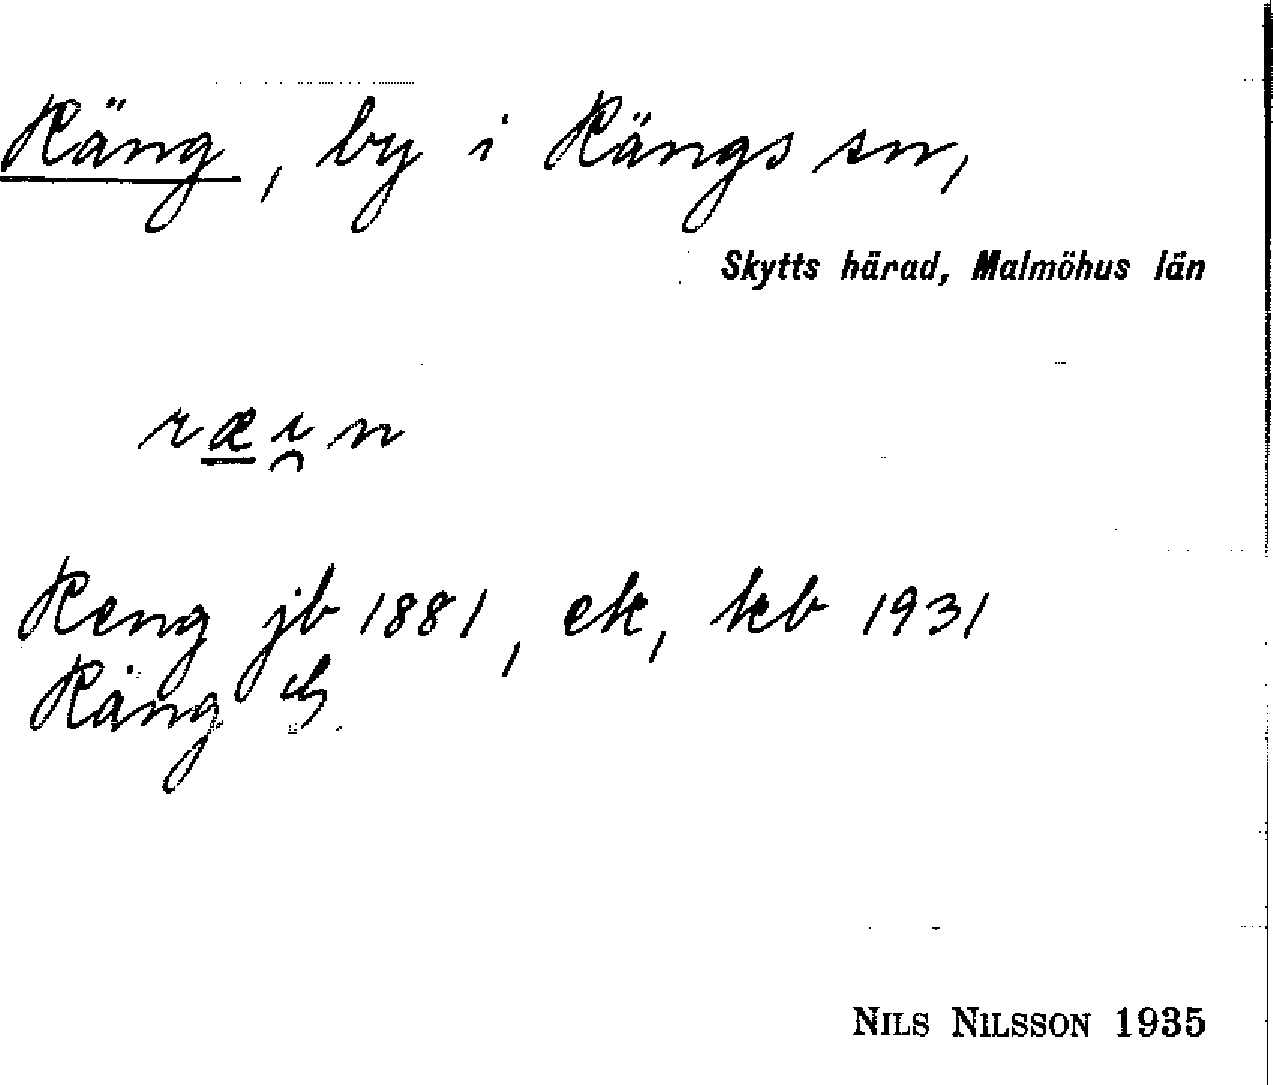 Räng, by i Rängs sn,
Skytts härad, Malmöhus län
ræi̯n
Reng jb 1881, ek, kb 1931
Räng
NILS NILSSON 1935